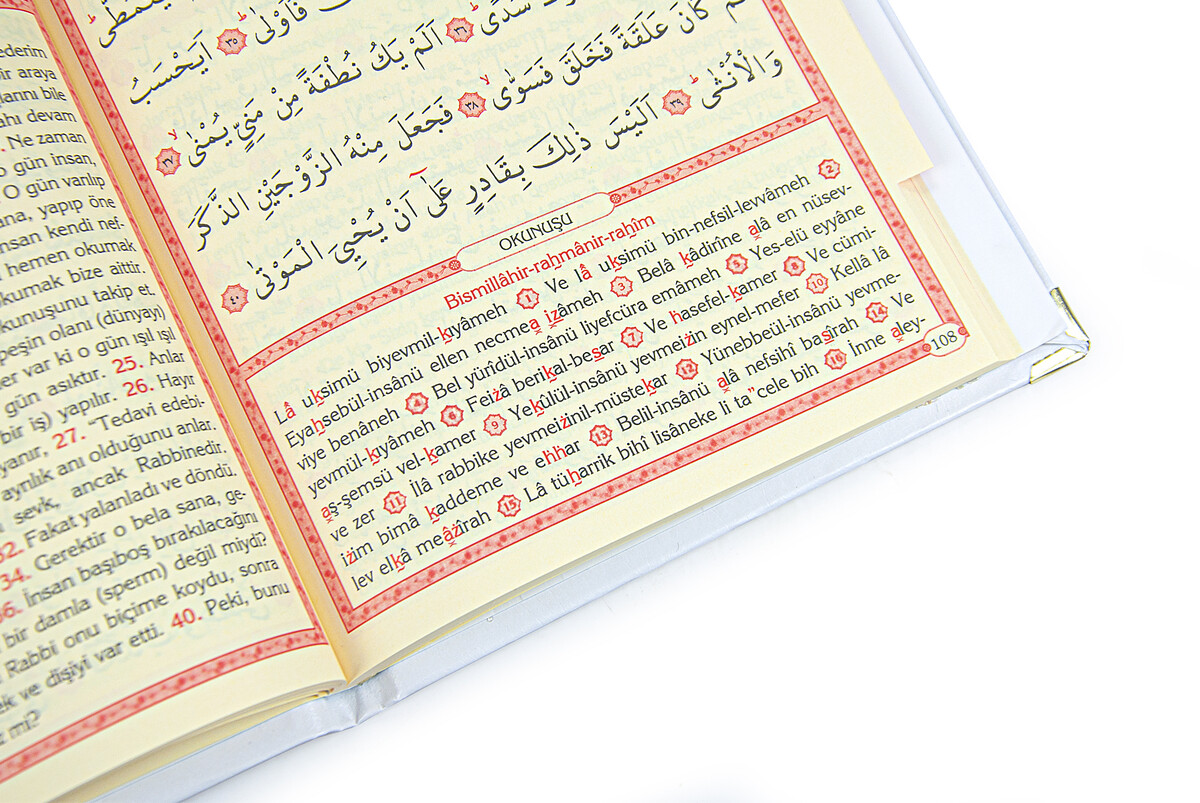 ederim
bir araya
larını bile
ahı devam
. Ne zaman
o gün insan,
O gün varılıp
ana, yapıp öne
nsan kendi nef-
hemen okumak
kumak bize aittir.
kunuşunu takip et.
peşin olanı (dünyayı)
er var ki o gün ışıl ışıl
gün asıktır. 25. Anlar
bir iş) yapılır. 26. Hayır
yanır, 27. “Tedavi edebi-
ayrılık anı olduğunu anlar.
sevk, ancak Rabbinedir.
32. Fakat yalanladı ve döndü.
34. Gerektir o bela sana, ge-
36. İnsan başıboş bırakılacağını
bir damla (sperm) değil miydi?
Rabbi onu biçime koydu, sonra
ek ve dişiyi var etti. 40. Peki, bunu
z mi?
يَتَمَطّٰى
فَاَوْلٰى ٣٥ اَيَحْسَبُ
سُدًى ٣٦ اَلَمْ يَكُ نُطْفَةً مِنْ مَنِيٍّ يُمْنٰى ٣٧
كَانَ عَلَقَةً فَخَلَقَ فَسَوّٰى ٣٨ فَجَعَلَ مِنْهُ الزَّوْجَيْنِ الذَّكَرَ
وَالْاُنْثٰى ٣٩ اَلَيْسَ ذٰلِكَ بِقَادِرٍ عَلٰٓى اَنْ يُحْيِيَ الْمَوْتٰى ٤٠
OKUNUŞU
Bismillâhir-rahmânir-rahîm
Lâ uksimü biyevmil-kıyâmeh 1 Ve lâ uksimü bin-nefsil-levvâmeh 2
Eyahsebül-insânü ellen necmea ızâmeh 3 Belâ kâdirîne alâ en nüsev-
viye benâneh 4 Bel yürîdül-insânü liyefcüra emâmeh 5 Yes-elü eyyâne
yevmül-kıyâmeh 6 Feiżâ berikal-besar 7 Ve hasefel-kamer 8 Ve cümi-
aş-şemsü vel-kamer 9 Yekûlül-insânü yevmeiżin eynel-mefer 10 Kellâ lâ
ve zer 11 İlâ rabbike yevmeiżinil-müstekar 12 Yünebbeül-insânü yevme-
iżim bimâ kaddeme ve ehhar 13 Belil-insânü alâ nefsihî basîrah 14 Ve
lev elkâ meâżîrah 15 Lâ tüharrik bihî lisâneke li ta”cele bih 16 İnne aley-
108